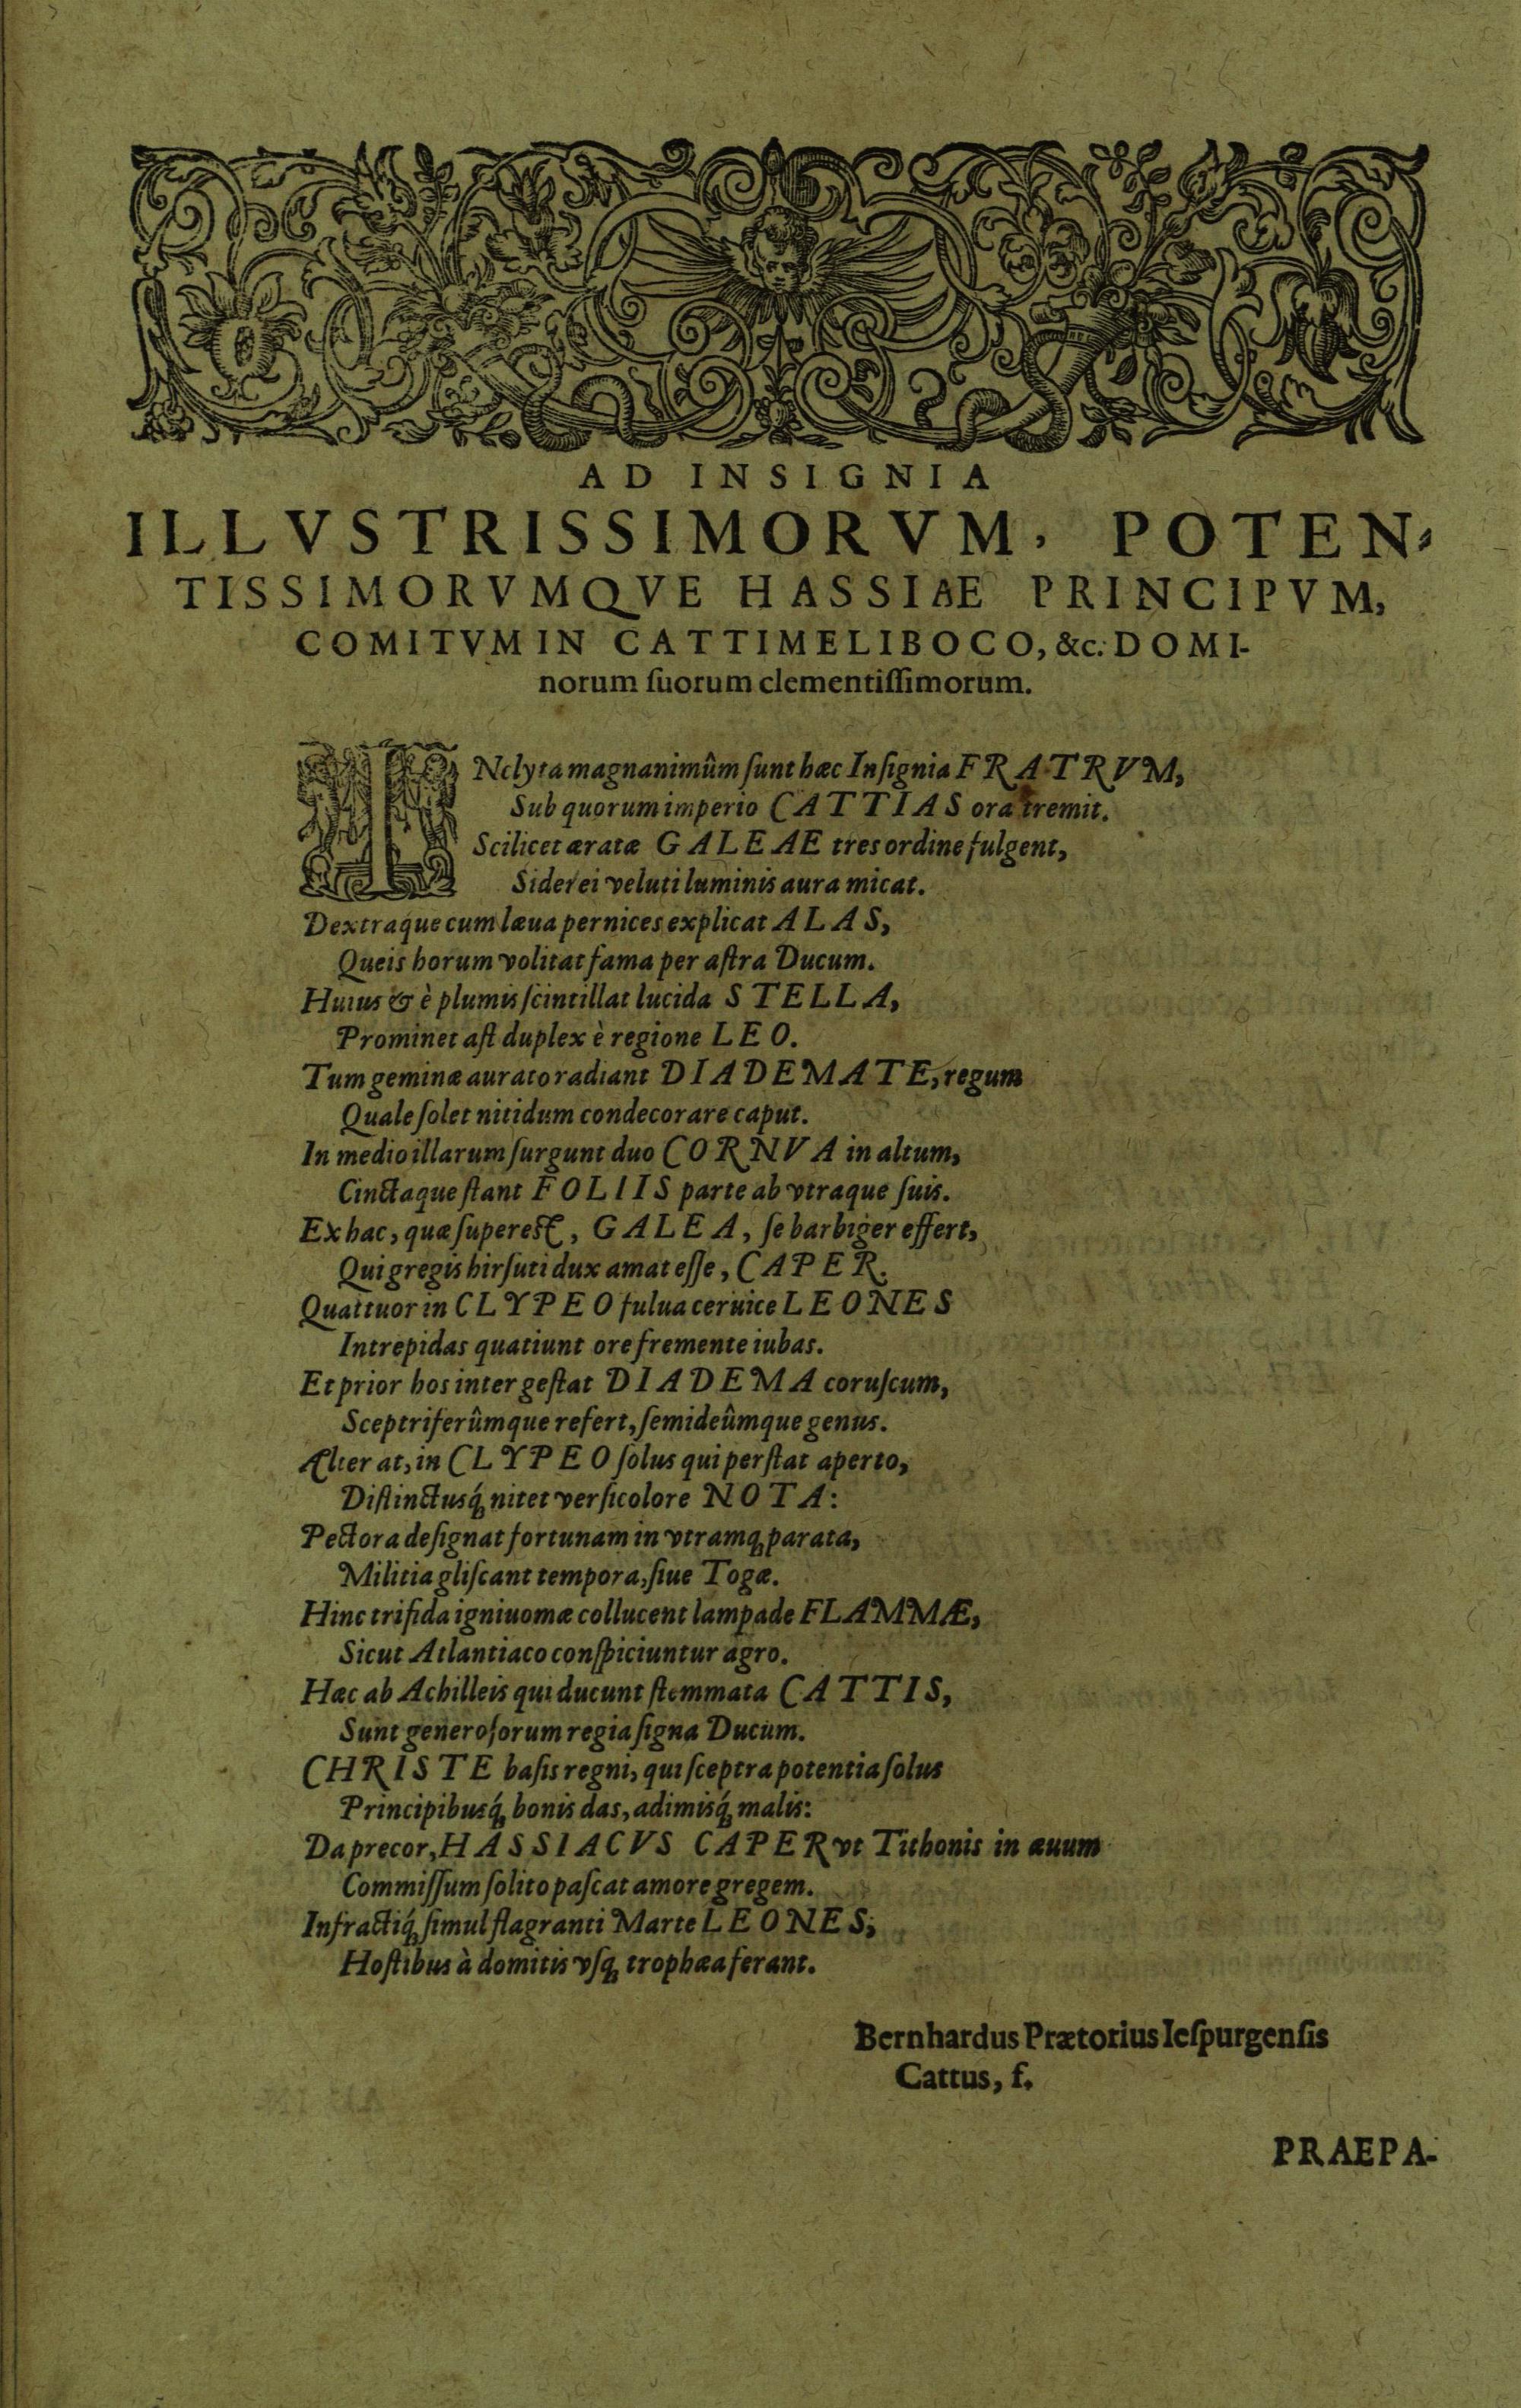 AD INSIGNIA
ILLVSTRISSIMORVM, POTEN-
TISSIMORVMQVE HASSIAE PRINCIPVM,
COMITVM IN CATTIMELIBOCO, &c. DOMI-
norum ſuorum clementiſſimorum.
INclyta magnanimûm ſunt hæc Inſignia FRATRVM,
Sub quorum imperio CATTIAS ora tremit.
Scilicet æratæ GALEAE tres ordine fulgent,
Siderei veluti luminis aura micat.
Dextraque cum læua pernices explicat ALAS,
Queis horum volitat fama per aſtra Ducum.
Huius & è plumis ſcintillat lucida STELLA,
Prominet aſt duplex è regione LEO.
Tum geminæ aurato radiant DIADEMATE, regum
Quale ſolet nitidum condecorare caput.
In medio illarum ſurgunt duo CORNVA in altum,
Cinctaque ſtant FOLIIS parte ab vtraque ſuis.
Ex hac, quæ ſupereſt, GALEA, ſe barbiger effert,
Qui gregis hirſuti dux amat eſſe, CAPER.
Quattuor in CLYPEO fulua ceruice LEONES
Intrepidas quatiunt ore fremente iubas.
Et prior hos inter geſtat DIADEMA coruſcum,
Sceptriferûmque refert, ſemideûmque genus.
Alter at, in CLYPEO ſolus qui perſtat aperto,
Diſtinctusq́; nitet verſicolore NOTA:
Pectora deſignat fortunam in vtramq; parata,
Militia gliſcant tempora, ſiue Togæ.
Hinc trifida igniuomæ collucent lampade FLAMMÆ,
Sicut Atlantiaco conſpiciuntur agro.
Hæc ab Achilleis qui ducunt ſtemmata CATTIS,
Sunt generoſorum regia ſigna Ducum.
CHRISTE baſis regni, qui ſceptra potentia ſolus
Principibusq́; bonis das, adimisq́; malis:
Da precor, HASSIACVS CAPER vt Tithonis in æuum
Commiſſum ſolito paſcat amore gregem.
Infractiq́; ſimul flagranti Marte LEONES;
Hoſtibus à domitis vſq; trophæa ferant.
Bernhardus Prætorius Ieſpurgenſis
Cattus, f.
PRAEPA-